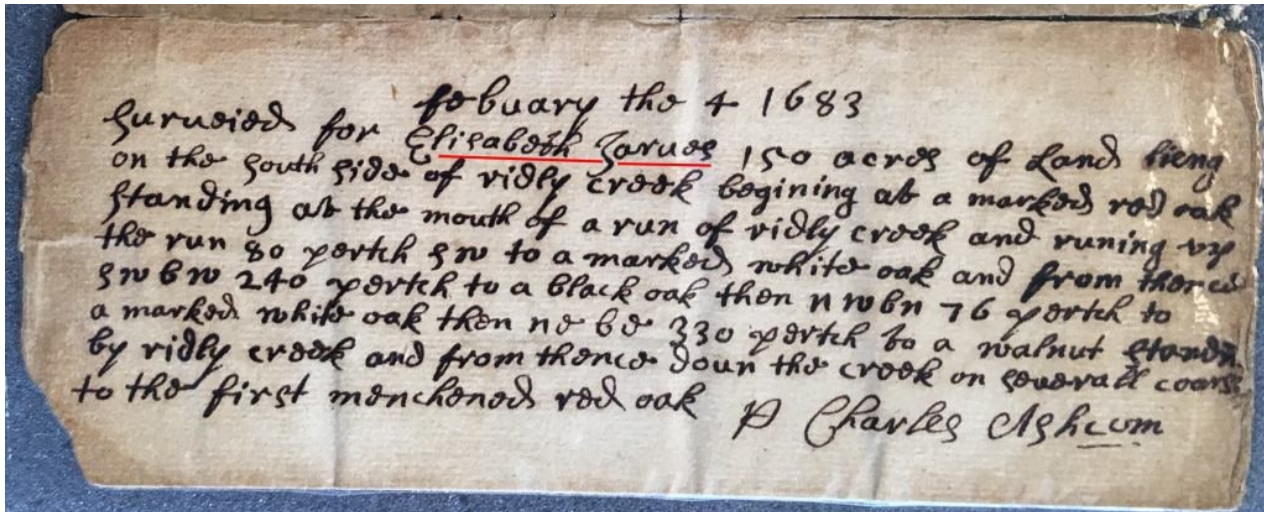 febuary the 4 1683
Surueied for Elisabeth Jarues 150 acres of Land lieng
on the South Side of ridly creek begining at a marked red oak
Standing at the mouth of a run of ridly creek and runing vp
the run 80 pertch SW to a marked white oak and from thence
SWbW 240 pertch to a black oak then nwbn 76 pertch to
a marked white oak then ne be 330 pertch to a walnut Standn
by ridly creek and from thence doun the creek on Seuerall coars
to the first menchened red oak
P Charles Ashcom